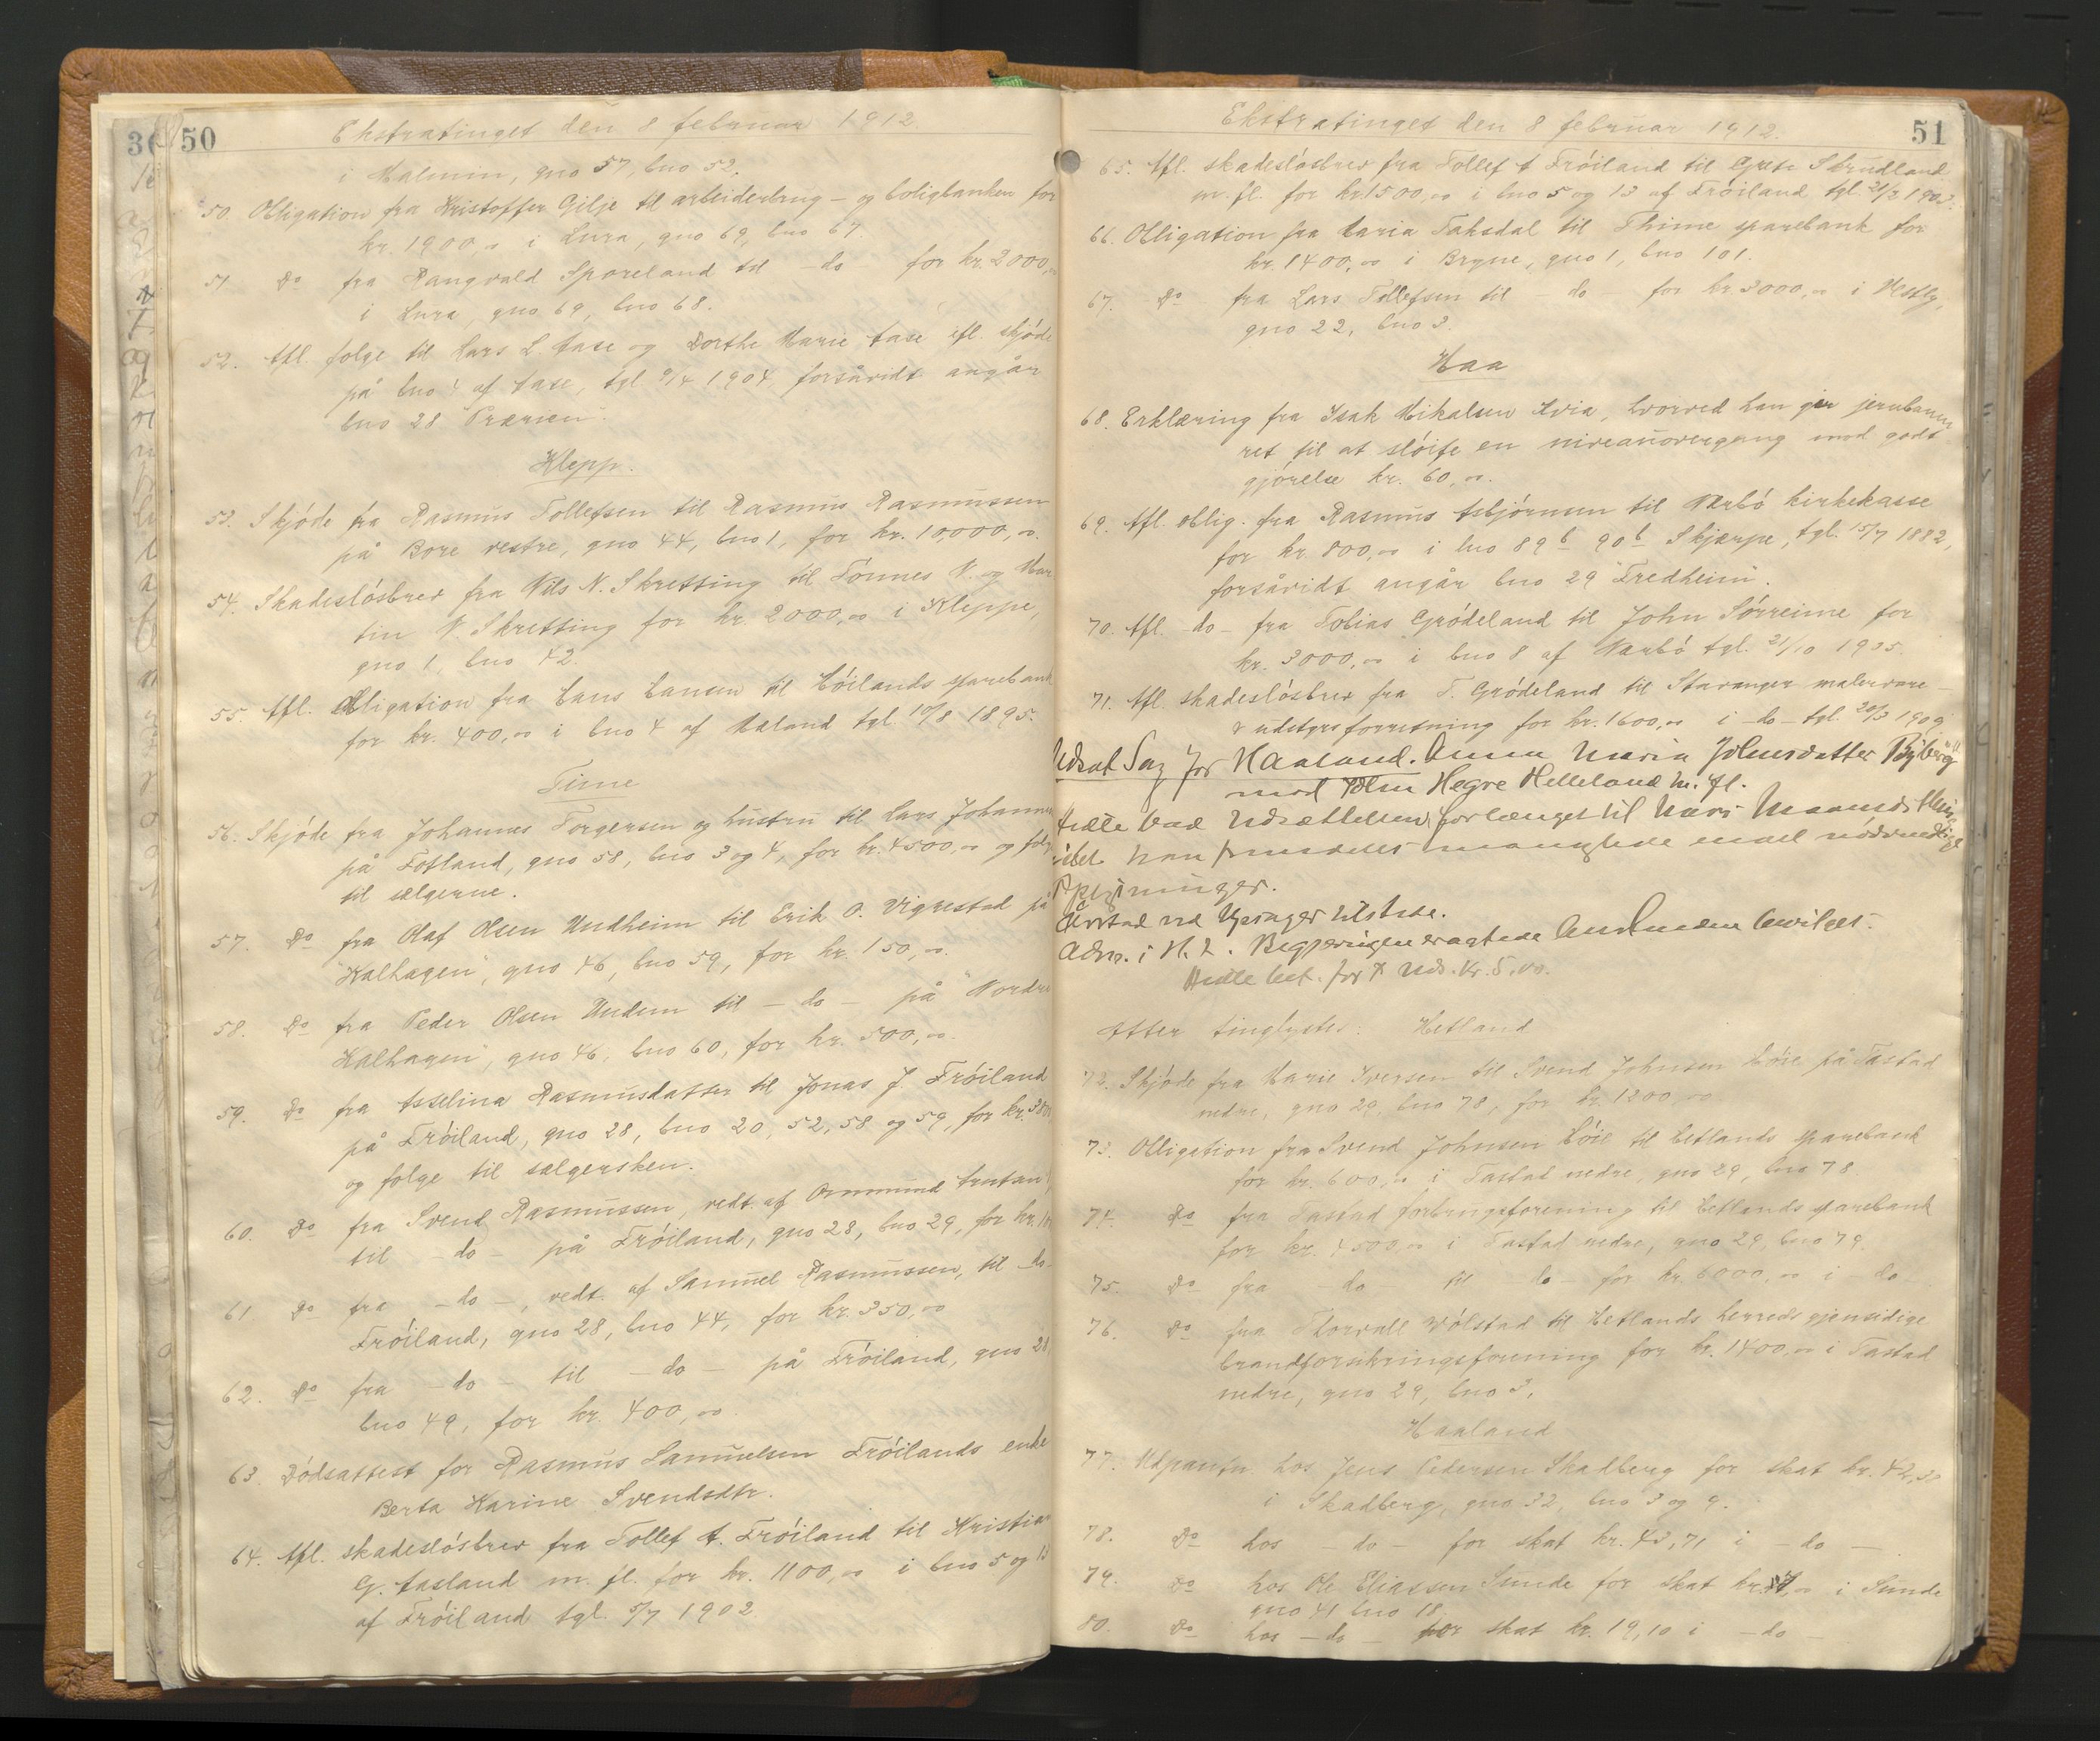 50
Ekstratinget den 8 februar 1912
i Malmin, gno 57, bno 52.
50. Obligation fra Kristoffer Gilje til arbeiderbrug- og boligbanken for
kr. 1900,00 i Lura, gno 69, bno 67.
51. Do fra Rangvald Sporeland til -do- for kr. 2000,00
i Lura, gno 69, bno 68.
52. Afl. følge til Lars L. Aase og Dorthe Marie Aase ifl. skjøde
på bno 4 af Aase, tgl. 9/4 1904, forsåvidt angår
bno 28 "Prærien".
Klepp.
53. Skjøde fra Rasmus Tollefsen til Rasmus Rasmussen
på Bore vestre, gno 44, bno 1, for kr. 10000,00.
54. Skadesløsbrev fra Nils N. Skretting til Tønnes N. og Mar
tin N. Skretting for kr. 2000,00 i Kleppe,
gno 1, bno 42.
55. Afl. Obligation fra Hans Hansen til Høilands sparebank
for kr. 400,00 i bno 4 af Maland tgl. 10/8 1895.
Time
56. Skjøde fra Johannes Torgersen og hustru til Lars Johannes
på Fotland, gno 58, bno 3 og 4, for kr. 4500,00 og følge
til sælgerne.
57. Do fra Olaf Olsen Undheim til Erik O. Vigrestad på
"Kalhagen", gno 46, bno 59, for kr. 150,00.
58. Do fra Peder Olsen Undem til -do- på "Nordre
Kalhagen", gno 46, bno 60, for kr. 500,00.
59. Do fra Asselina Rasmusdatter til Jonas J. Frøiland
på Frøiland, gno 28, bno 20, 52, 58 og 59, for kr. 3800
og følge til sælgersken.
60. Do fra Svend Rasmussen, vedt. af Ommund
til -do- på Frøiland, gno 28, bno 29, for kr.
61 Do fra -do-, vedt. af Samuel Rasmussen, til -do-
Frøiland, gno 28, bno 44, for kr. 350,00
62. Do fra -do- til -do- på Frøiland, gno 28,
bno 49, for kr. 400,00.
63. Dødsattest for Rasmus Samuelsen Frøilands enke
Berta Karine Svendsdtr.
64. Afl. skadesløsbrev fra Tollef A. Frøiland til Kristian
G. Aasland m. fl. for kr. 1100,00 i bno 5 og 13
af Frøiland tgl. 5/7 1902
51
Ekstratinget den 8 februar 1912.
65. Afl. skadesløsbrev fra Tollef A Frøiland til Grete Skrudland
m. fl. for kr. 1500,00 i bno 5 og 13 af Frøiland tgl. 21/2 1903.
66. Obligation fra Maria Taksdal til Thime sparebank for
kr. 1400,00 i Bryne, gno 1, bno 101.
67. Do fra Lars Tollefsen til do for kr 3000,00 i Vestly,
gno 22, bno 3.
Haa
68. Erklæring fra Isak Mikalsen Kvia, hvorved han gir jernbanen
ret til at sløife en niveauovergang mod godt
gjørelse kr. 60,00.
69. Afl. oblig. fra Rasmus Asbjørnsen til Nærbø kirkekasse
for kr. 800,00 i lno 89 b 90 b Skjærpe, tgl. 15/7 1882,
forsåvidt angår bno 29 "Fredheim".
70. Afl. -do- fra Tobias Grødeland til John Sørreime for
kr. 3000,00 i bno 8 af Nærbø tgl. 21/10 1905.
71. Afl. skadesløsbrev fra T. Grødeland til Stavanger malervare-
& udstyrsforretning for kr. 1600,00 i -do- tgl. 20/3 1909
Udsat Sag for Haaland. Anna Maria Johnsdatter Byberg
mod John Hegre Helleland m. fl.
Hedle bad Udsættelsen forlænget til Mars Maanedsthing
idet han fremdeles manglede endel nødvendige
Oplysninger.
Årstad ved Opsager tilstede.
Adm. i H. T. Begjæringen eragtede Ansſunden bevilget.
Hedle bet. for 1 Uds. Kr. 5,00.
Efter tinglystes: Hetland
72. Skjøde fra Marie Iversen til Svend Johnsen Høie på Tastad
nedre, gno 29, bno 78, for kr. 1200,00
73. Obligation fra Svend Johnsen Høie til Hetlands sparebank
for kr. 600,00 i Tastad nedre, gno 29, bno 78.
74. Do fra Tastad forbrugsforening til Hetlands sparebank
for kr. 4500,00 i Tastad nedre, gno 29, bno 79.
75. Do fra -do- til do- for kr. 6000,00 i do
76. Do fra Thorvall Vølstad til Hetlands herreds gjensidige
brandforsikringsforening for kr. 1400,00 i Tastad
nedre, gno 29, bno 3.
Haaland
77. Udpantn. hos Jens Pedersen Skadberg for skat kr. 42,32
i Skadberg, gno 32, bno 3 og 9.
78. Do hos -do- for skat kr. 43,71 i -do-
79. Do hos Ole Eliassen Sunde for skat kr. i Sunde
gno 41 bno 18.
80. Do hos -do- for skat kr. 19,10 i -do-